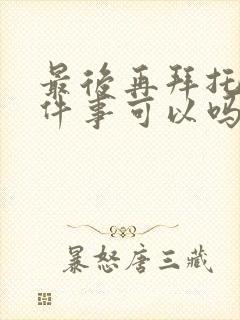 最後再拜托
件事可以吗
暴怒唐三藏